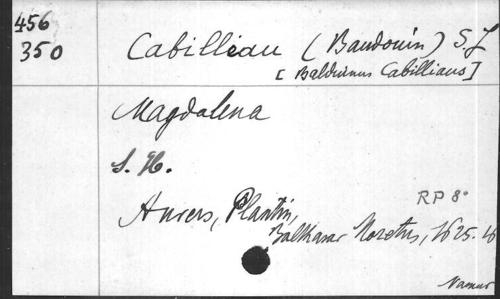 456
350
Cabilliau (Baudouin) S.J
[Balduinus Cabilliaus]
Magdalena
S. H.
RP 8°
Anvers, Plantin,
Balthasar Moretus, 1625. 16
Namur